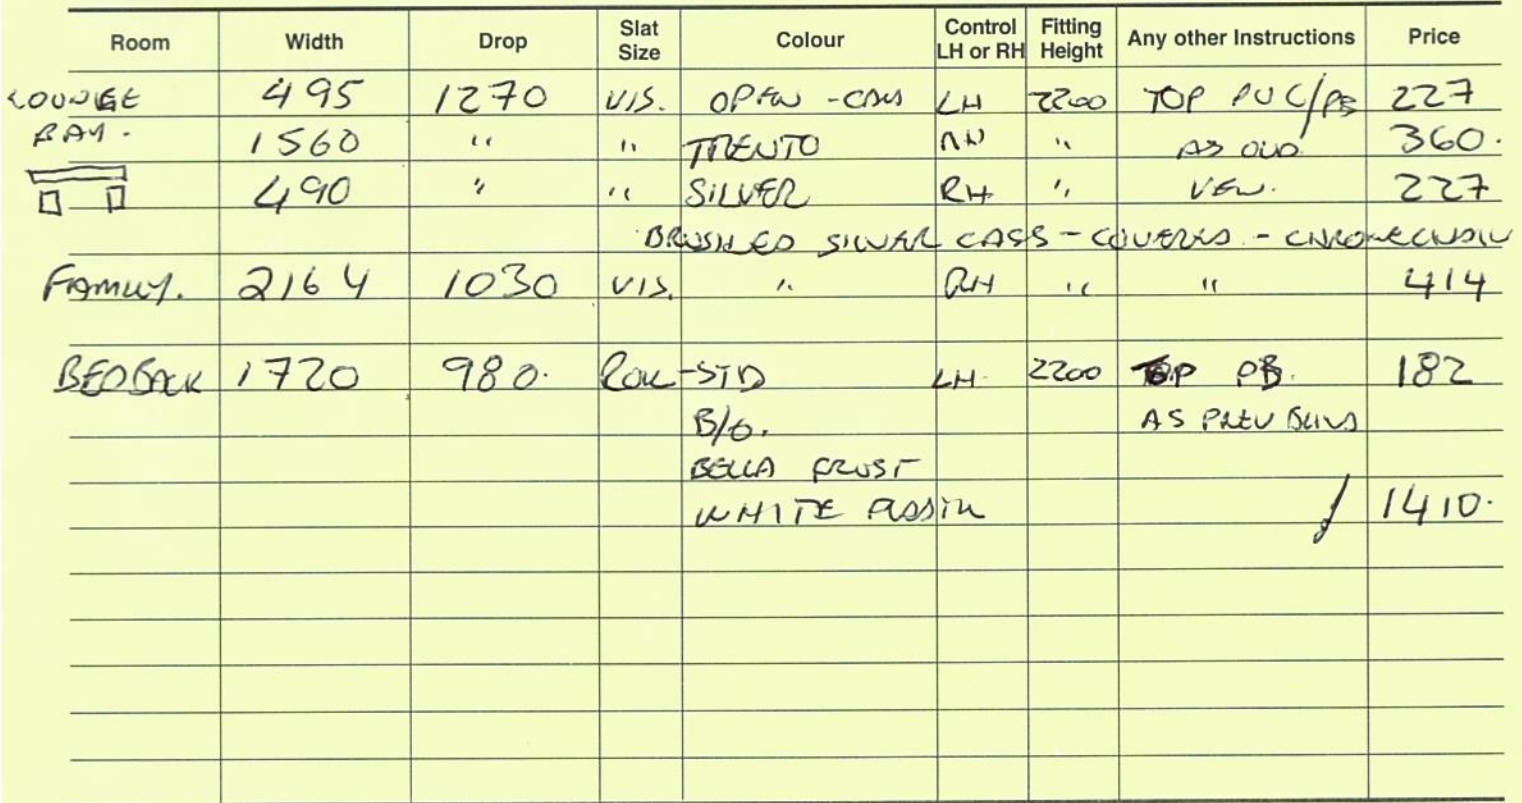 Room Width Drop Slat Size Colour Control LH or RH Fitting Height Any other Instructions Price
LOUNGE 495 1270 VIS. OPEN - CASS LH 2200 TOP PVC/PB 227
BAY. 1560 " " TRENTO " AS OLD 360.
490 " " SILVER RH " VEN. 227
BRUSHED SILVER CASS - COVERED - CHROME
FAMILY. 2164 1030 VIS. " RH " " 414
BEDBACK 1720 980. ROLL - STD LH. 2200 TOP PB. 182
B/O. AS PREV BLIND
BELLA FROST
WHITE PLASTIC / 1410.